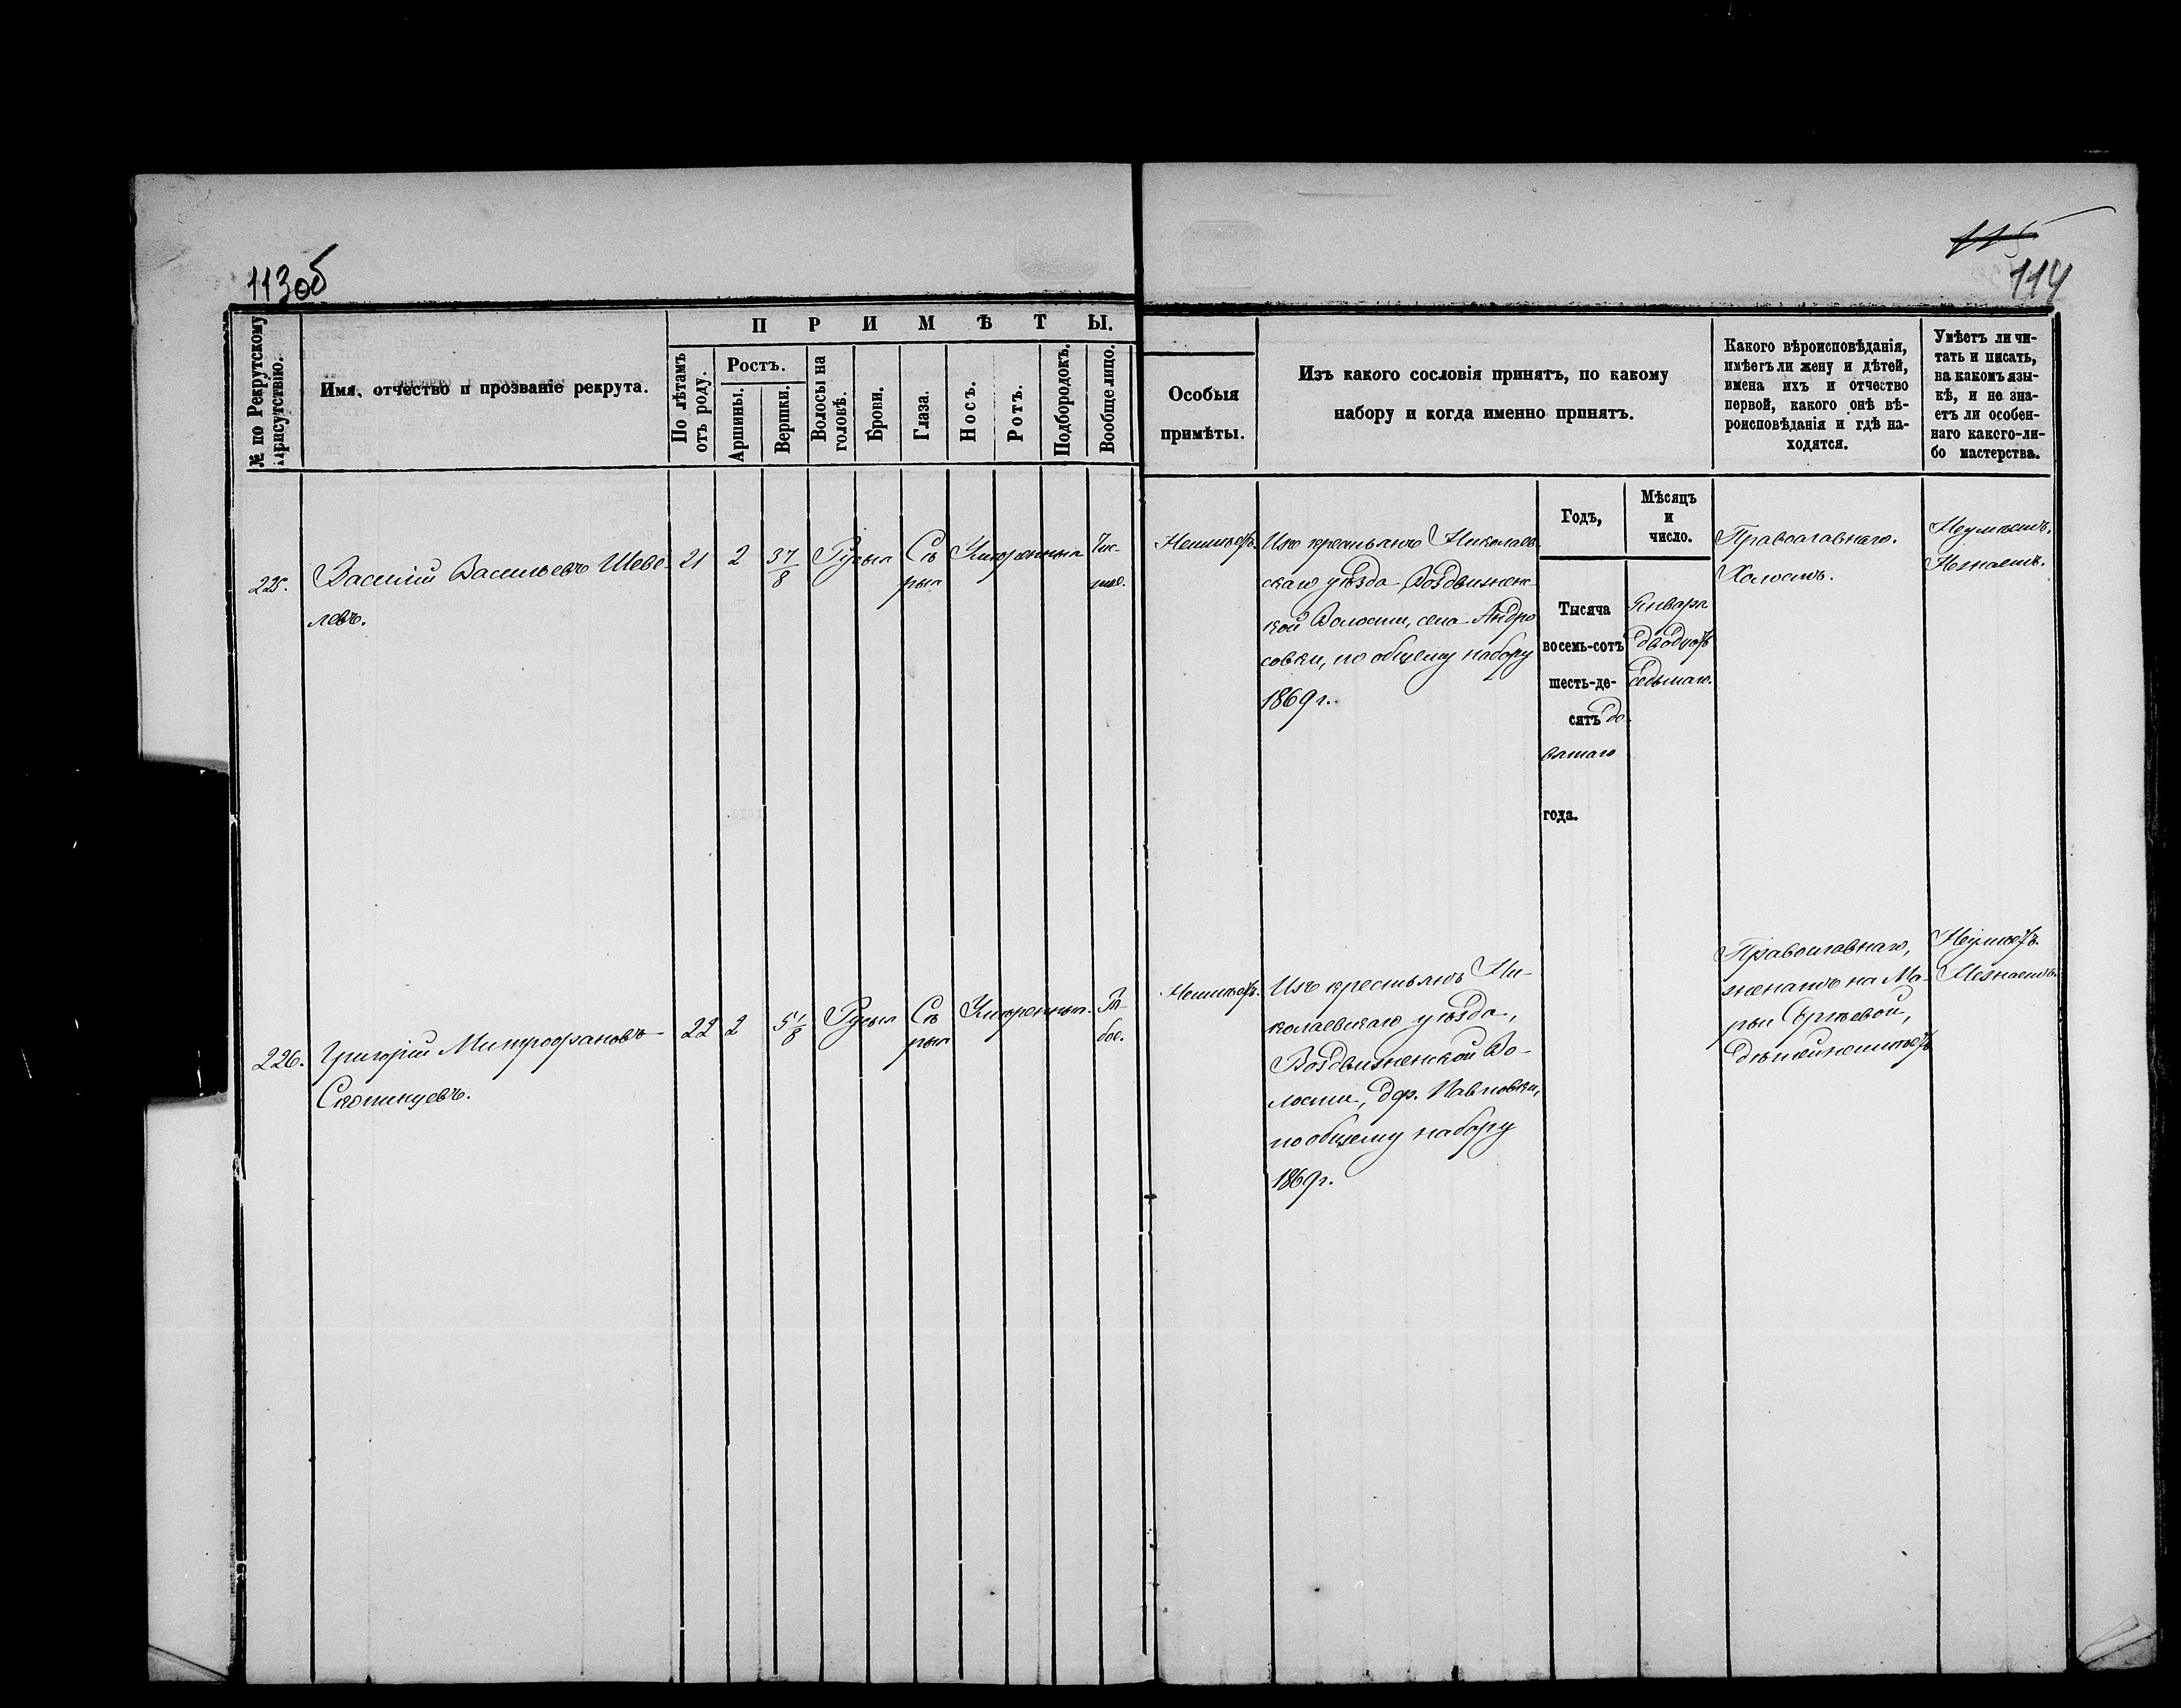 113об
115
114
№ по Рекрутскому
присутствію.
Имя, отчество и прозваніе рекрута.
ПРИМѢТЫ.
По лѣтамъ
отъ роду.
Ростъ.
Аршины.
Вершки.
Волосы на
головѣ.
Брови.
Глаза.
Носъ.
Ротъ.
Подбородокъ.
Вообще лицо.
Особыя
примѣты.
Изъ какого сословія принятъ, по какому
набору и когда именно принятъ.
Какого вѣроисповѣданія,
имѣетъ ли жену и дѣтей,
имена ихъ и отчество
первой, какого онѣ вѣ-
роисповѣданія и гдѣ на-
ходятся.
Умѣетъ ли чи-
тать и писать,
на какомъ язы-
кѣ, и не зна-
етъ ли особен-
наго какого-ли-
бо мастерства.
225.
Василій Васильевъ Шеве-
левъ.
21
2
3 7/8
Русыя
Сѣ
рыя
Умѣренныя
Чис-
тое.
Неимѣетъ.
Изъ крестьянъ Николаев-
скаго уѣзда Воздвиженс-
кой Волости, села Андро
совки, по общему набору
1869 г.
Годъ,
Тысяча
восемь-сотъ
шесть-де-
сятъ де-
вятаго
года.
Мѣсяцъ
и
число.
Января
двадцать
седьмаго.
Православнаго.
Холостъ.
Неумѣетъ.
Незнаетъ.
226.
Григорій Митрофановъ
Скопинцевъ.
22
2
5 1/8
Русыя
Сѣ
рыя
Умѣренныя.
Ря-
бое.
Неимѣетъ.
Изъ крестьянъ Ни-
колаевскаго уѣзда,
Воздвиженской Во-
лости, дер. Павловки,
по общему набору
1869 г.
Православнаго,
женатъ на Ма-
рьи Сергѣевой,
дѣтей неимѣетъ
Неумѣетъ.
Незнаетъ.